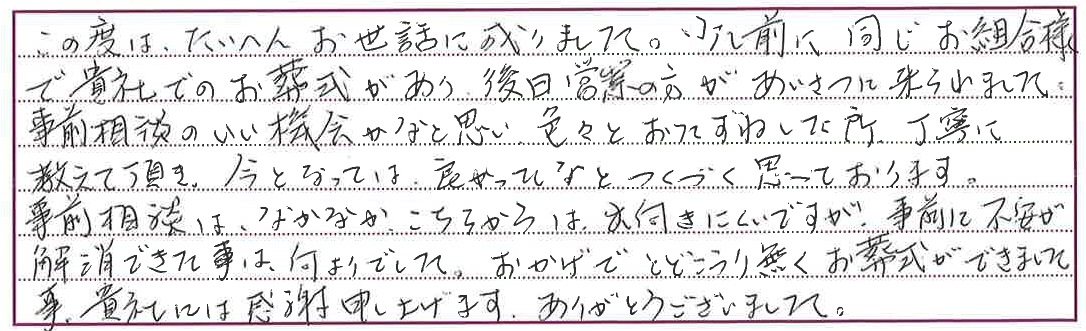 この度は、たいへんお世話に成りました。少し前に同じお組合様
で貴社でのお葬式があり、後日営業の方があいさつに来られました。
事前相談のいい機会かなと思い、色々とおたずねした所、丁寧に
教えて頂き、今となっては、良かったなとつくづく思っております。
事前相談は、なかなか、こちらからは、出向きにくいですが、事前に不安が
解消できた事は、何よりでした。おかげでとどこうり無くお葬式ができまして
事、貴社には感謝申し上げます。ありがとうございました。